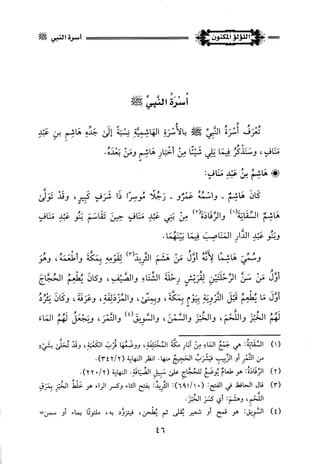 اللؤلؤ المكنون
أسرة النبي ﷺ
أُسْرَةُ النَّبِيِّ ﷺ
تُعْرَفُ أُسْرَةُ النَّبِيِّ ﷺ بِالأُسْرَةِ الهَاشِمِيَّةِ نِسْبَةً إِلَى جَدِّهِ هَاشِمِ بنِ عَبْدِ
مَنَافٍ، وسَنَذْكُرُ فِيمَا يَلِي شَيْئًا مِنْ أَخْبَارِ هَاشِمٍ ومَنْ بَعْدَهُ.
هَاشِمُ بنُ عَبْدِ مَنَافٍ:
كَانَ هَاشِمٌ - واسْمُهُ عَمْرٌو - رَجُلًا مُوسِرًا ذَا شَرَفٍ كَبِيرٍ، وقَدْ تَوَلَّى
هَاشِمٌ السِّقَايَةَ(١) والرِّفَادَةَ(٢) مِنْ بَنِي عَبْدِ مَنَافٍ حِينَ تَقَاسَمَ بَنُو عَبْدِ مَنَافٍ
وبَنُو عَبْدِ الدَّارِ المَنَاصِبَ فِيمَا بَيْنَهُمَا.
وسُمِّيَ هَاشِمًا لِأَنَّهُ أَوَّلُ مَنْ هَشَمَ الثَّرِيدَ(٣) لِقَوْمِهِ بِمَكَّةَ وأَطْعَمَهُ، وهُوَ
أَوَّلُ مَنْ سَنَّ الرِّحْلَتَيْنِ لِقُرَيْشٍ رِحْلَةَ الشِّتَاءِ والصَّيْفِ، وكَانَ يُطْعِمُ الحُجَّاجَ
أَوَّلَ مَا يُطْعِمُ قَبْلَ التَّرْوِيَةِ بِيَوْمٍ بِمَكَّةَ، وبِمِنَى، والمُزْدَلِفَةِ، وعَرَفَةَ، وكَانَ يَثْرُدُ
لَهُمُ الخُبْزَ واللَّحْمَ، والخُبْزَ والسَّمْنَ، والسَّوِيقَ(٤) والتَّمْرَ، ويَجْعَلُ لَهُمُ المَاءَ
(١) السِّقَايَةُ: هي جَمْعُ المَاءِ مِنْ آبَارِ مَكَّةَ المُخْتَلِفَةِ، ووَضْعُهَا قُرْبَ الكَعْبَةِ، وقد تُحَلَّى بشيءٍ
من التَّمْرِ أو الزَّبِيبِ فيَشْرَبُ الحَجِيجُ منها. انظر النهاية (٣٤٢/٢).
(٢) الرِّفَادَةُ: هو طعامٌ يُوضَعُ للحُجَّاجِ على سَبِيلِ الضِّيَافَةِ. النهاية (٢٢٠/٢).
(٣) قال الحافظ في الفتح: (٦٩١/١٠): الثَّرِيدُ: بفتح الثاء وكسر الراء هو خَلْطُ الخُبْزِ بِمَرَقِ
اللَّحْمِ، وهشم: أي كسر الخُبْزَ.
(٤) السَّوِيقُ: هو قمح أو شعير يُقْلَى ثم يُطْحَنُ، فيتزود به، ملتوتًا بماء أو سمن=
٤٦